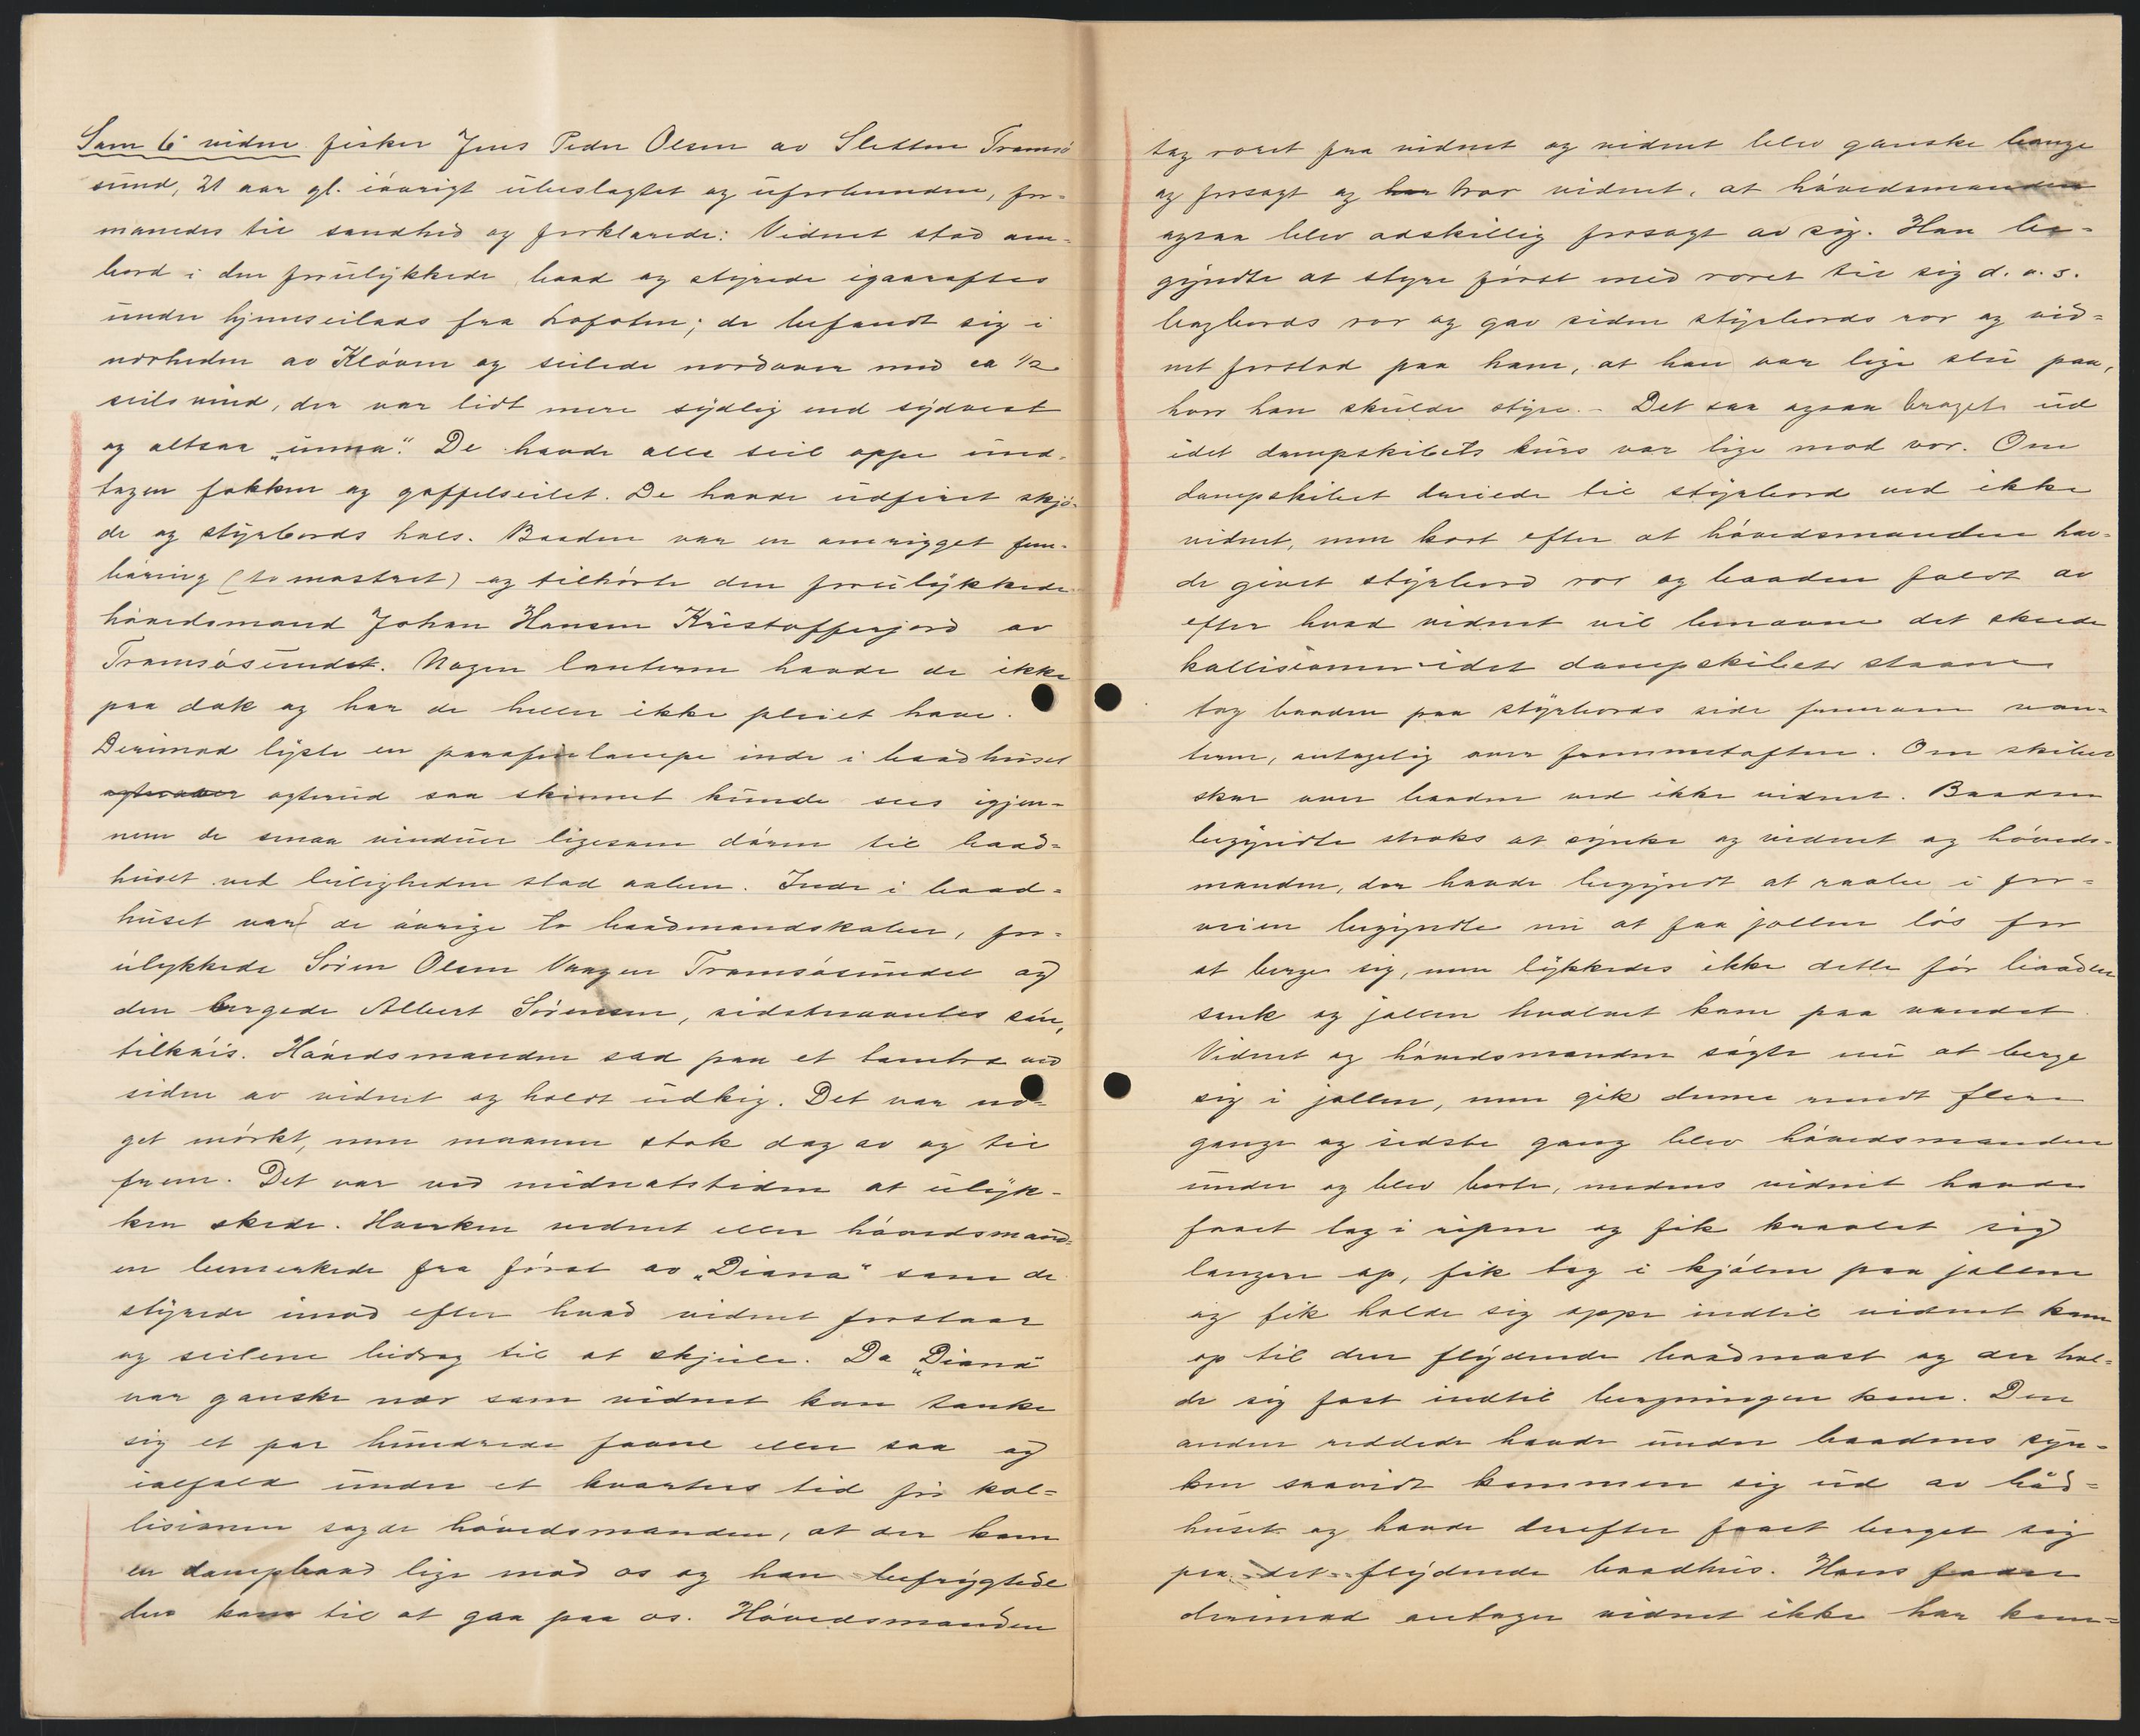 Som 6' vidne fisker Jens Peder Olsen av Sletten Tromsö
sund, 21 aar gl. iövrigt ubeslegtet og uforbunden, for-
manedes til sandhed og forklarede: Vidnet stod om-
bord i den forulykkede baad og styrede igaaraftes
under hjemseilads fra Lofoten; de befandt sig i
nærheden av Klöven og seilede nordover med ca 1/2
seils vind, der var lidt mere sydlig end sydvest
og altsaa „unna". De havde alle seil oppe und-
tagen fokken og gaffelseilet. De havde udfiret skjö-
de og styrbords hals. Baaden var en omrigget fem-
böring (to mastret) og tilhörte den forulykkede
hövedsmand Johan Hansen Kristofferjord av
Tromsösundet. Nogen lanterne havde de ikke
paa dæk og har de heller ikke pleiet have.
Derimod lyste en parafinlampe inde i baadhuset
agterover agterud saa skinnet kunde sees igjen-
nem de smaa vinduer ligesom dören til baad-
huset ved leiligheden stod aaben. Inde i baad-
huset var de övrige to baadmandskaber, for-
ulykkede Sören Olsen Vangen Tromsösundet og
den bergede Albert Sörensen, sidstnævntes sön,
tilköis. Hövedsmanden sad paa et ved
siden av vidnet og holdt udkig. Det var no-
get mörkt, men maanen stak dog av og til
frem. Det var ved midnatstiden at ulyk-
ken skede. Hverken vidnet eller hövedsmand-
en bemerkede fra först av „Diana" som de
styrede imod efter hvad vidnet forstaar
og seilene bidrog til at skjule. Da „Diana"
var ganske nær som vidnet kan tænke
sig et par hundrede favne eller saa og
ialfald under et kvarters tid för kol-
lisionen sagde hövedsmanden, at der kom
en dampbaad lige mod os og han befrygtede
den kom til at gaa paa os. Hövedsmanden
tog roret fra vidnet og vidnet blev ganske bange
og forsagt og har tror vidnet, at hövedsmanden
ogsaa blev adskillig forsagt av sig. Han be-
gyndte at styre först med roret til sig d.v.s.
bagbords ror og gav siden styrbords ror og vid-
net forstod paa ham, at han var lige stö paa,
hvor han skulde styre. - Det saa ogsaa braaget ud
idet dampskibets kurs var lige mod vor. Om
dampskibet dreiede til styrbord ved ikke
vidnet, men kort efter at hövedsmanden hav-
de givet styrbord ror og baaden faldt av
efter hvad vidnet vil benævne det skede
kollisionen idet dampskibets stævn
tog baaden paa styrbords side fremom van-
terne, antagelig over fremmetoften. Om skibet
skar over baaden ved ikke vidnet. Baaden
begyndte straks at synke og vidnet og höveds-
manden, der havde begyndt at raabe i for-
veien begyndte nu at faa jollen lös for
at berge sig, men lykkedes ikke dette för baaden
sank og jollen hvalvet kom paa vandet.
Vidnet og hövedsmanden sögte nu at berge
sig i jollen, men gik denne rundt flere
gange og sidste gang blev hövedsmanden
under og blev borte, medens vidnet havde
faaet tag i ripen og fik kravlet sig
længere op, fik tag i kjölen paa jollen
og fik holde sig oppe indtil vidnet kom
op til den flydende baadmast og der hol-
de sig fast indtil bergningen kom. Den
anden reddede havde under baadens syn-
ken saavidt kommen sig ud av båd-
huset og havde derefter faaet berget sig
paa det flydende baadhus. Hans fader
derimod antager vidnet ikke har kom-